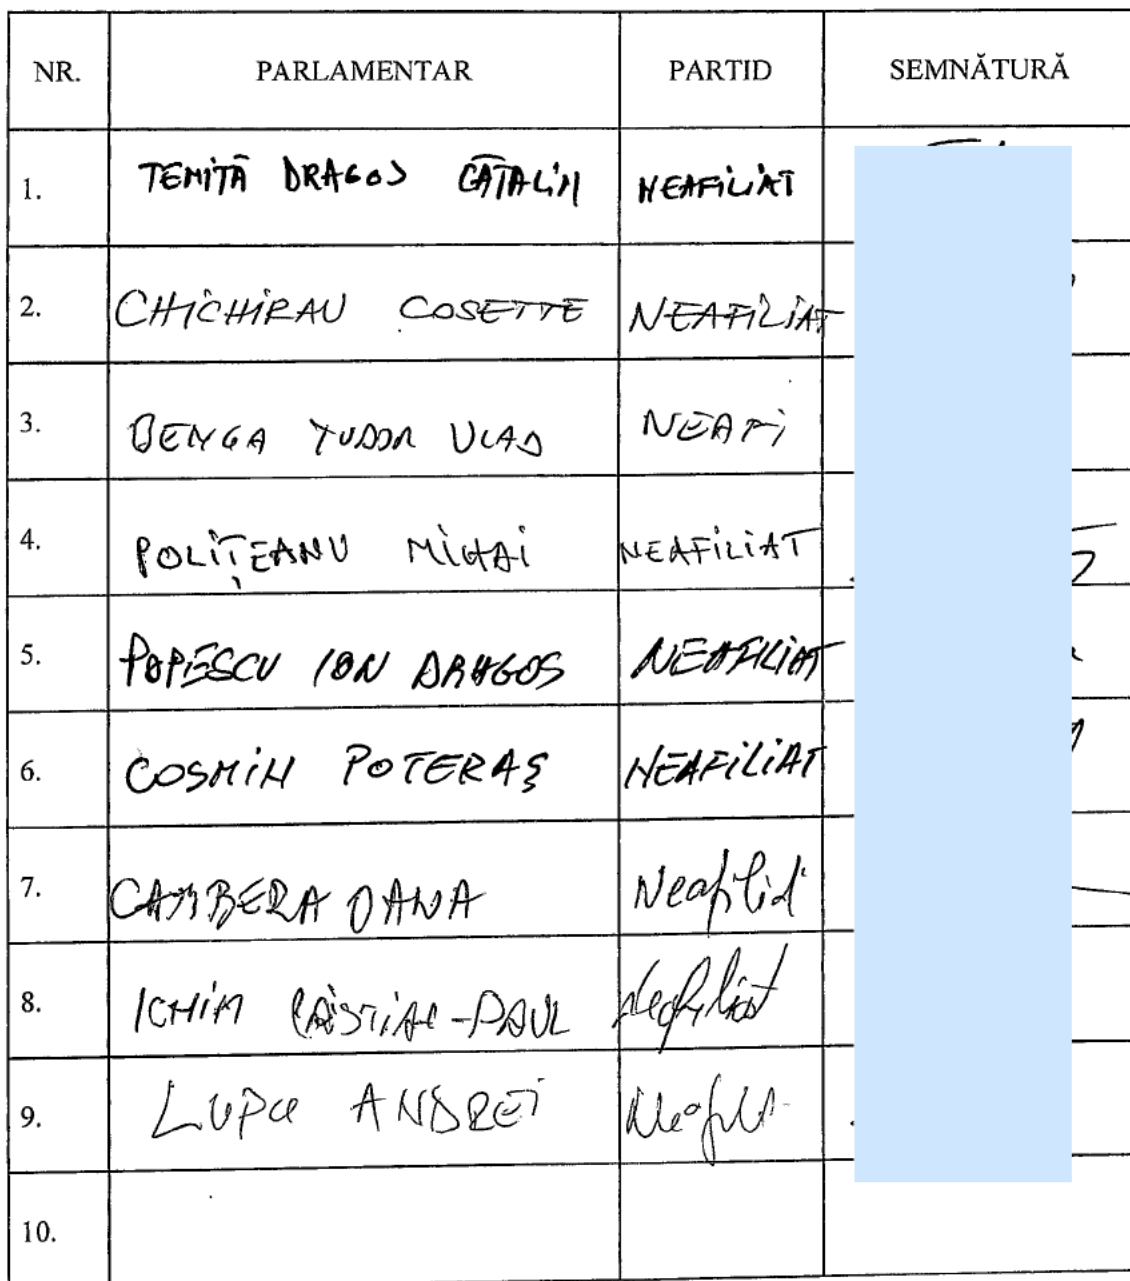 NR. PARLAMENTAR PARTID SEMNĂTURĂ
1. TEMITĂ DRAGOS CĂTALIN NEAFILIAT
2. CHICHIRAU COSETTE NEAFILIAT
3. BENGA TUDOR VLAD NEAFI
4. POLIȚEANU MIHAI NEAFILIAT
5. POPESCU ION DRAGOS NEAFILIAT
6. COSMIN POTERAȘ NEAFILIAT
7. CAMBERA OANA Neafiliat
8. ICHIM CRISTIAN-PAUL Neafiliat
9. LUPU ANDREI
10.